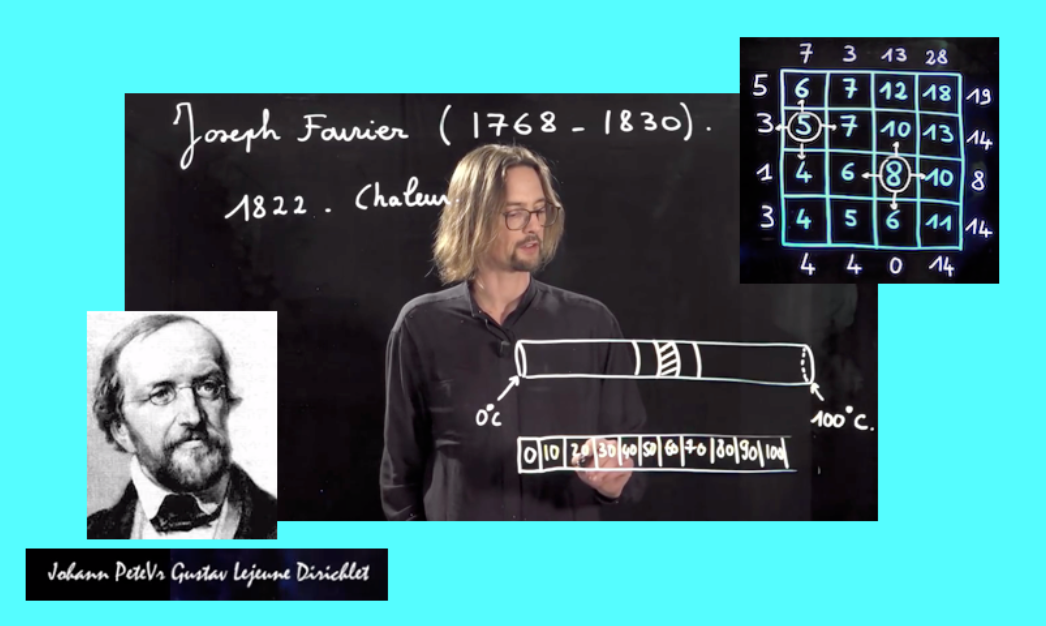 Joseph Fourier (1768 - 1830).
1822. Chaleur.
0°C
100°C.
0 10 20 30 40 50 60 70 80 90 100
7 3 13 28
5 6 7 12 18 19
3 5 7 10 13 14
1 4 6 8 10 8
3 4 5 6 11 14
4 4 0 14
Johann PeteVr Gustav Lejeune Dirichlet